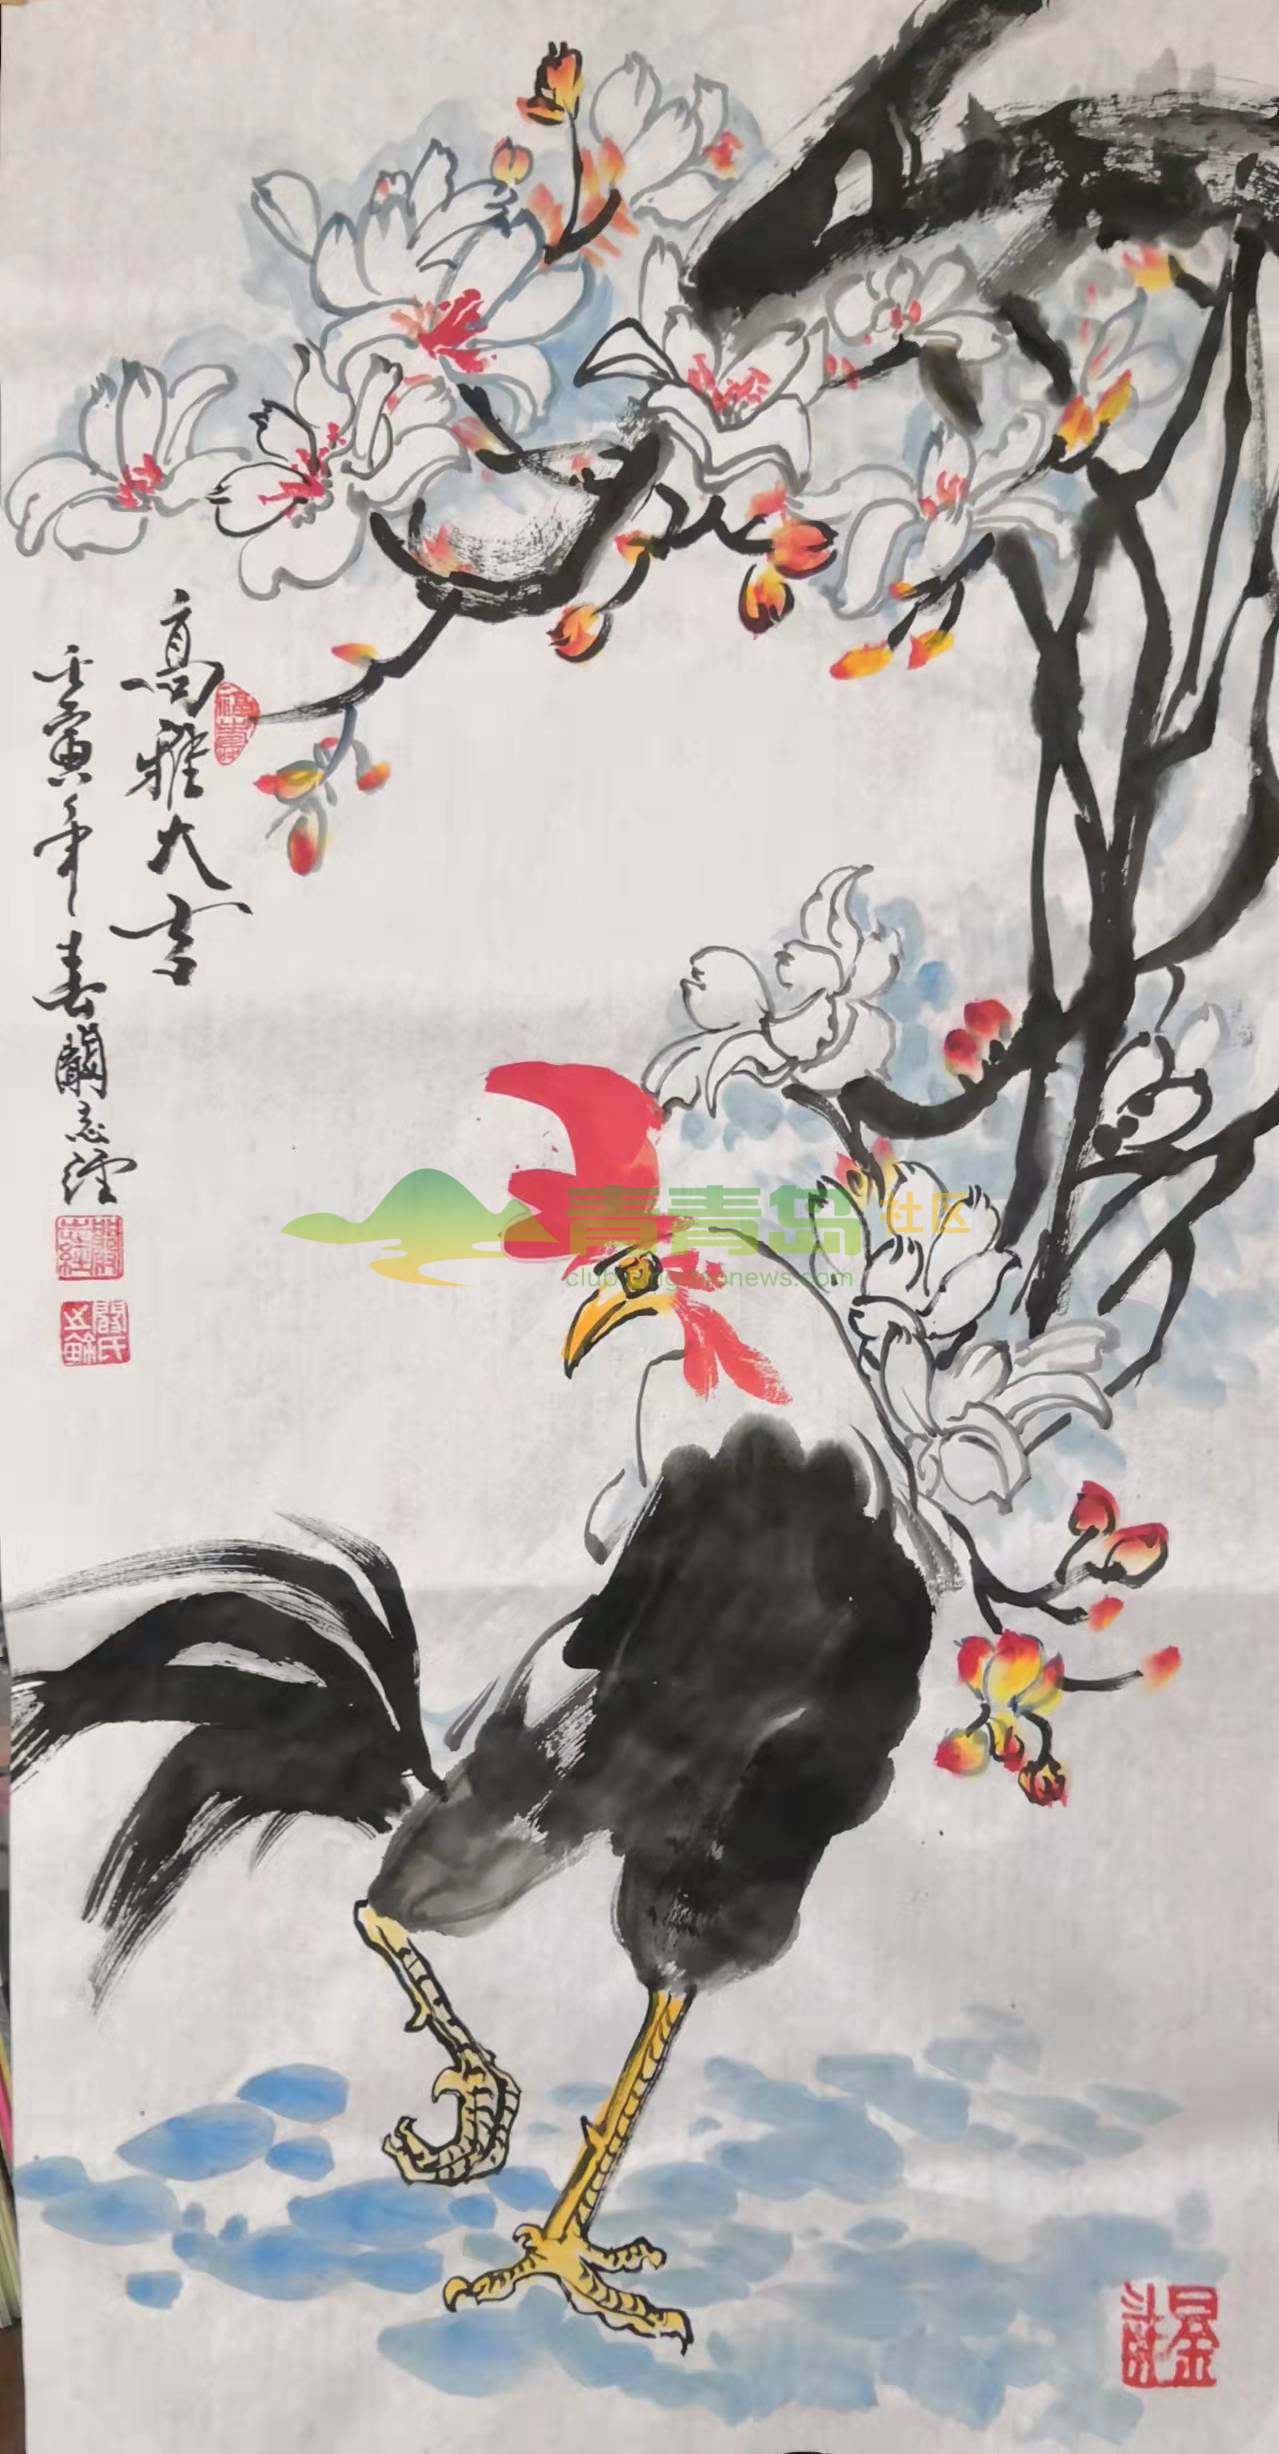 高雅大吉
壬寅年春閻志经
閻志經
閻氏
青青岛社区
club.qingdaonews.com